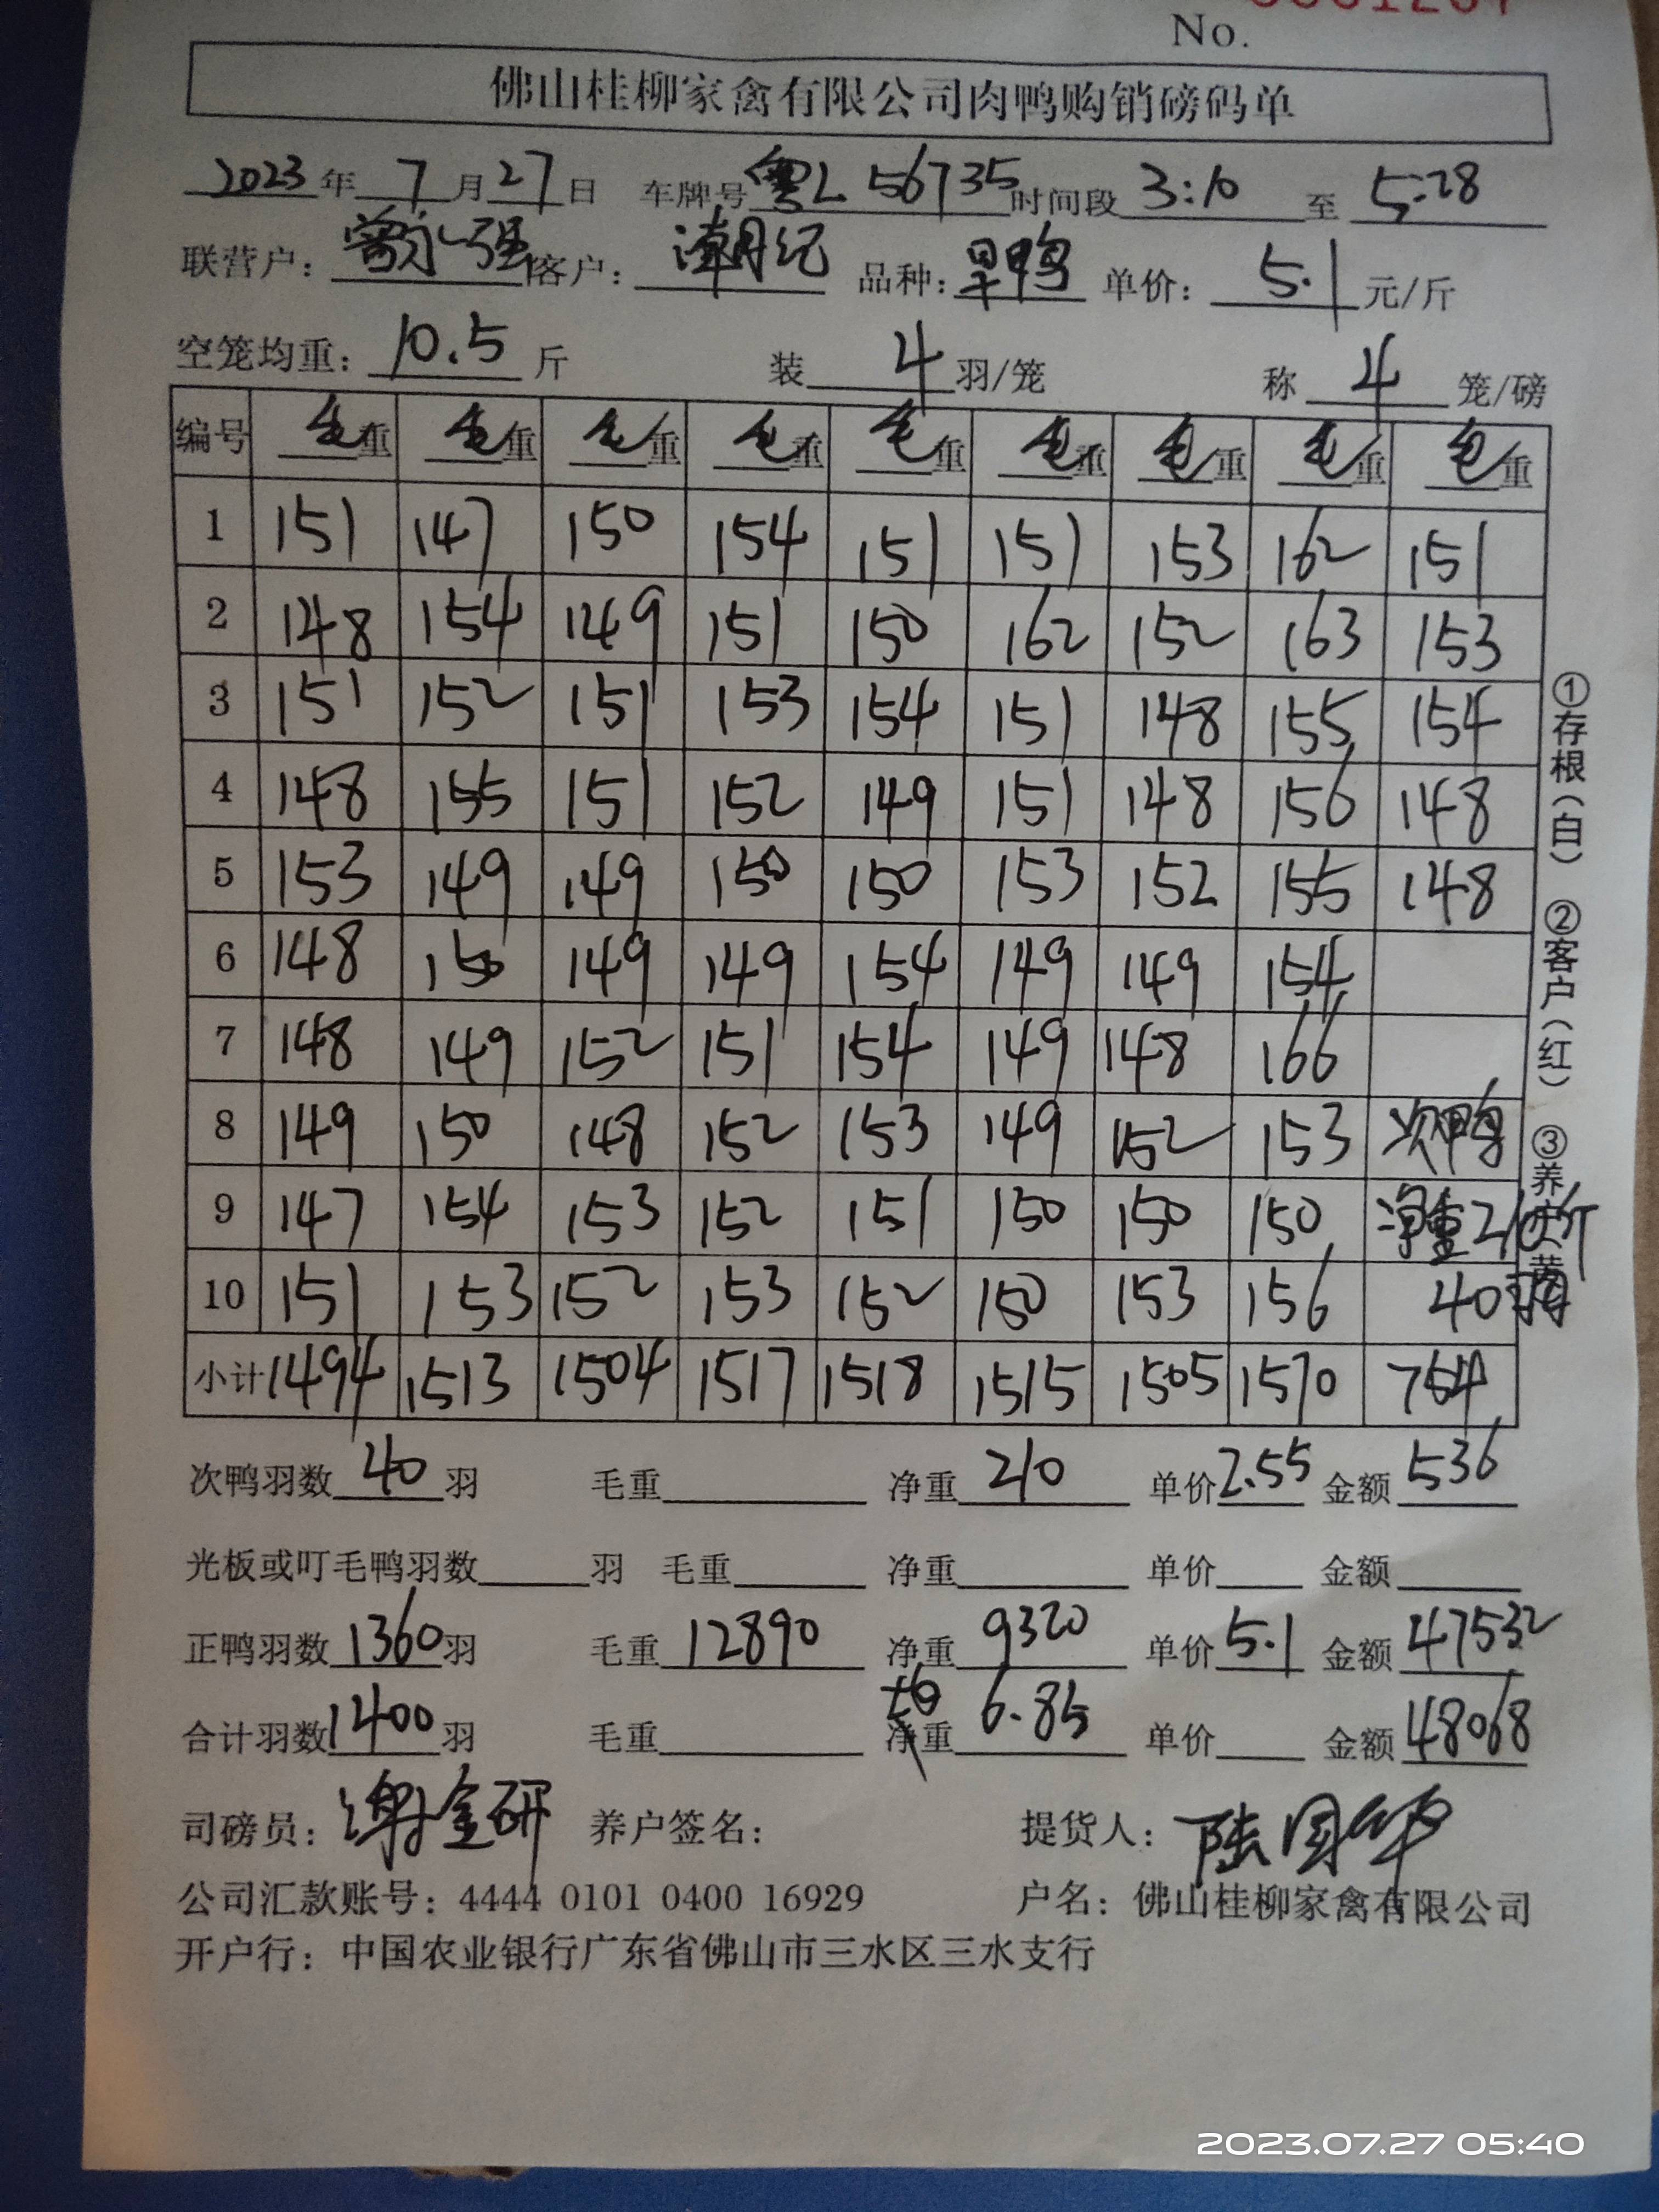 No.
佛山桂柳家禽有限公司肉鸭购销磅码单
2023年 7月27日 车牌号 粤L 56735 时间段 3:10 至 5:28
联营户：曾永强 客户：潮记 品种：旱鸭 单价：5.1 元/斤
空笼均重：10.5 斤 装 4 羽/笼 称 4 笼/磅
编号 毛重 毛重 毛重 毛重 毛重 毛重 毛重 毛重 毛重
1 151 147 150 154 151 151 153 162 151
2 148 154 149 151 150 162 152 163 153
3 151 152 151 153 154 151 148 155 154
4 148 155 151 152 149 151 148 156 148
5 153 149 149 150 150 153 152 155 148
6 148 150 149 149 154 149 149 154
7 148 149 152 151 154 149 148 166
8 149 150 148 152 153 149 152 153 次鸭
9 147 154 153 152 151 150 150 150 净重210斤
10 151 153 152 153 152 150 153 156 40羽
小计 1494 1513 1504 1517 1518 1515 1505 1570 754
①存根（白） ②客户（红） ③养户（黄
次鸭羽数 40 羽 毛重 净重 210 单价 2.55 金额 536
光板或叮毛鸭羽数 羽 毛重 净重 单价 金额
正鸭羽数 1360 羽 毛重 12890 净重 9320 单价 5.1 金额 47532
合计羽数 1400 羽 毛重 均重 6.85 单价 金额 48068
司磅员：谢金研 养户签名： 提货人：陆国华
公司汇款账号：4444 0101 0400 16929 户名：佛山桂柳家禽有限公司
开户行：中国农业银行广东省佛山市三水区三水支行
2023.07.27 05:40